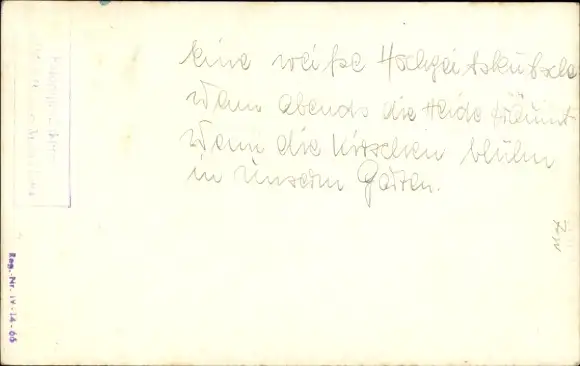 Eine weiße Hochzeitskutsche
Wenn abends die Heide träumt
Wenn die Kirschen blühn
in Unserm Garten.
Reg.-Nr. IV-14-65